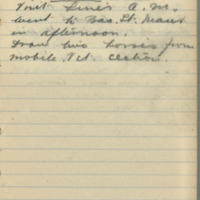 Visit lines A.M.
went to Bac. St. Maur
in afternoon.
Draw two horses from
mobile Vet. Section.